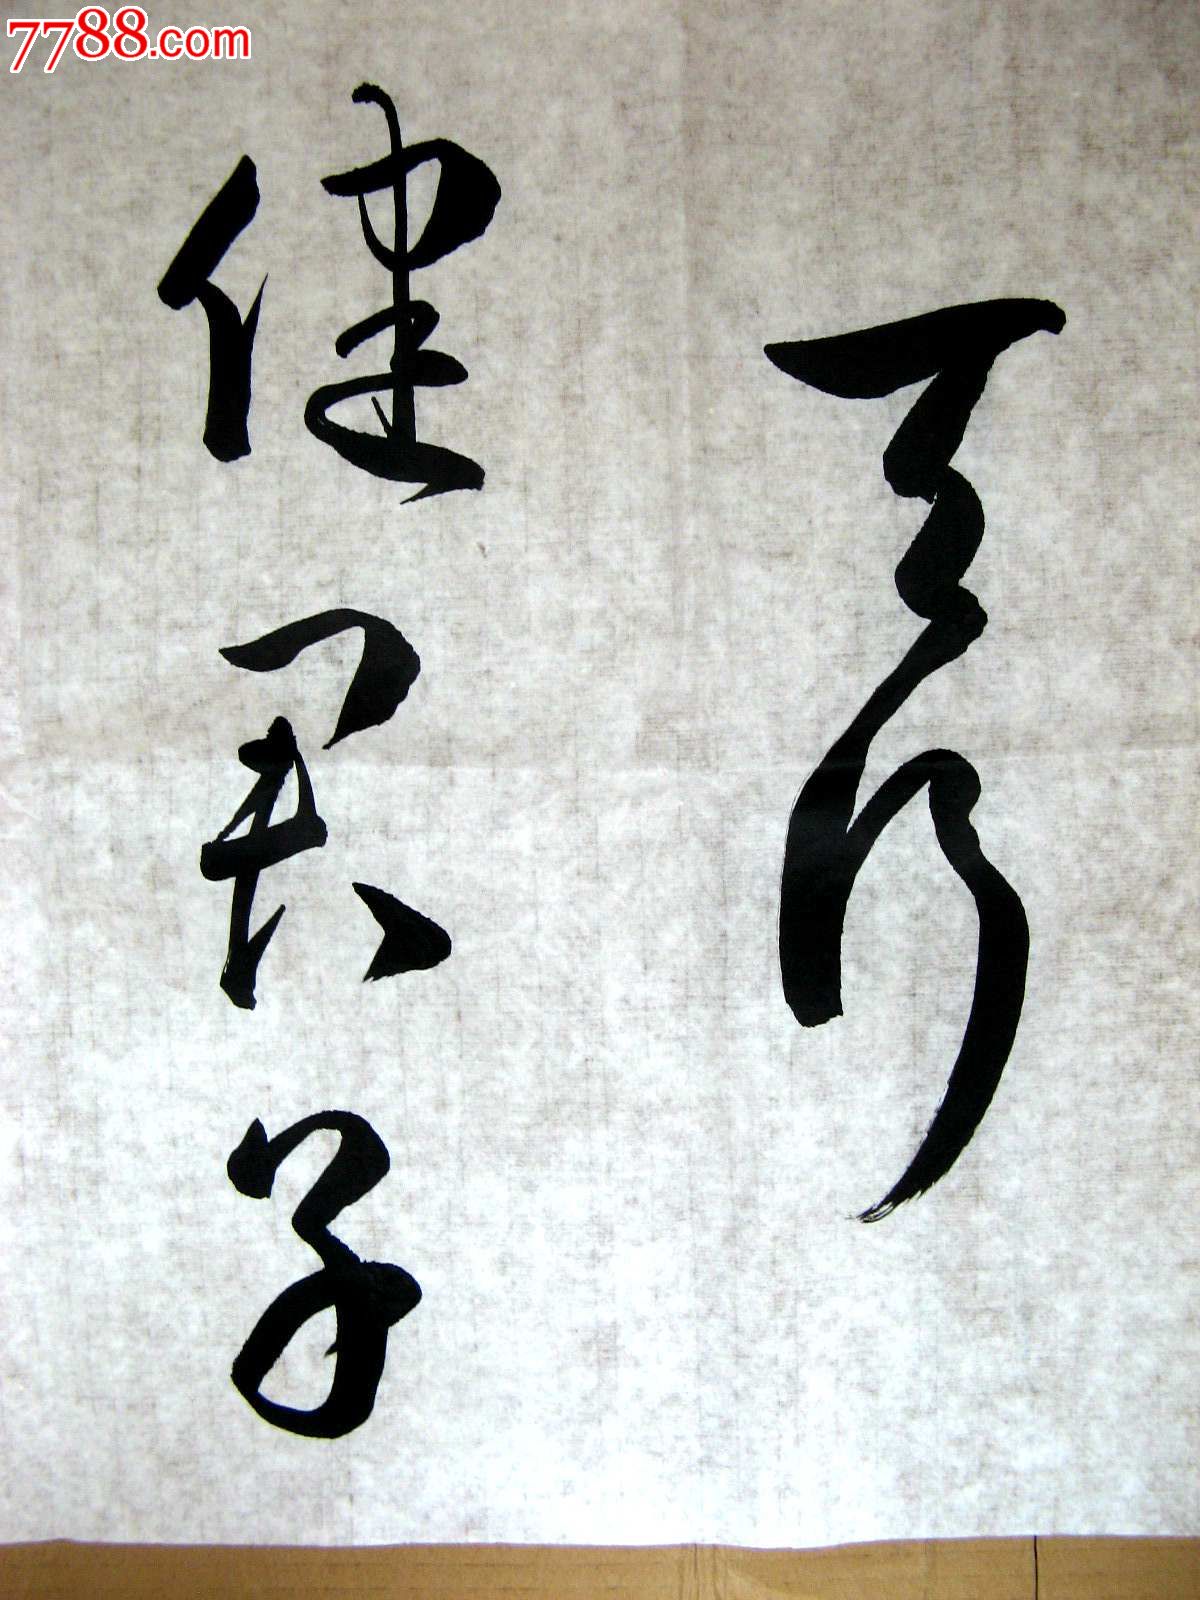 7788.com
天行
健君子